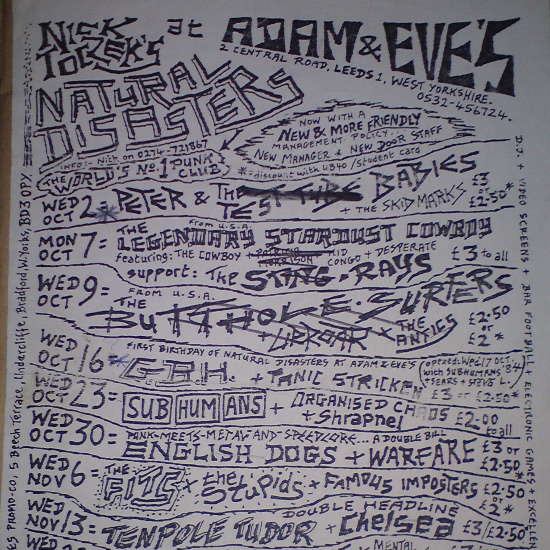 NICK TOCZEK'S at ADAM & EVE'S
2 CENTRAL ROAD, LEEDS 1, WEST YORKSHIRE.
0532-456724.
NATURAL DISASTERS
NOW WITH A
NEW & MORE FRIENDLY
MANAGEMENT POLICY...
NEW MANAGER & NEW DOOR STAFF
*=discount with UB40/Student card
INFO:- Nick on 0274-721867
(THE WORLD'S No.1 PUNK CLUB)
WED OCT 2 = PETER & THE TEST TUBE BABIES £3 or £2·50*
+ THE SKID MARKS
MON OCT 7 = from U.S.A.
THE LEGENDARY STARDUST COWBOY
featuring: THE COWBOY + CONGO + DESPERATE £3 to all
support: THE STING-RAYS
WED OCT 9 = FROM U.S.A.
THE BUTTHOLE SURFERS
+ UPROAR + THE ANTICS £2·50 or £2*
WED OCT 16 = FIRST BIRTHDAY OF NATURAL DISASTERS AT ADAM & EVE'S (opened: Wed 17 OCT. '84 with SUBHUMANS + SEARS + STEVE L.
G.B.H. + PANIC STRICKEN £3 or £2·50*
WED OCT 23 = SUBHUMANS + ORGANISED CHAOS + Shrapnel £2·00 to all
WED OCT 30 = PUNK-MEETS-METAL AND SPEEDCORE... A DOUBLE BILL
ENGLISH DOGS + WARFARE £3 or £2·50*
WED NOV 6 = THE FITS + the Stupids + FAMOUS IMPOSTERS £2·50 or £2*
WED NOV 13 = DOUBLE HEADLINE
TENPOLE TUDOR + Chelsea £3/£2·50*
MENTAL
PROMO-CO, 5 Beech Terrace, Undercliffe, Bradford, W. Yorks, BD3 0PY.
D.J. + VIDEO SCREENS + BAR FOOTBALL + ELECTRONIC GAMES +